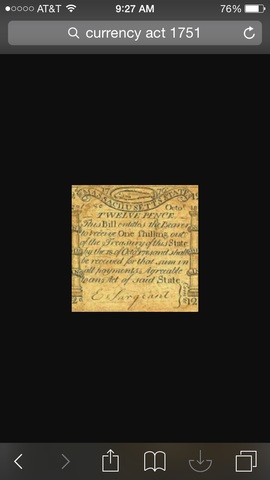 AT&T 9:27 AM 76%
currency act 1751
TWELVE PENCE.
This Bill entitles the Bearer
to receive One Shilling out
of the Treasury of this State
by the
be received for that sum in
all payments, Agreeable
to an Act of said State